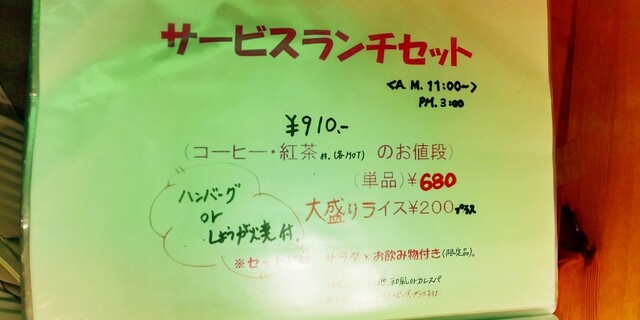 サービスランチセット
<A.M. 11:00~>
PM. 3:00
¥910.-
(コーヒー・紅茶 (各HOT) のお値段)
(単品)¥680
ハンバーグ
or
しょうが焼 付.
大盛りライス¥200プラス
※セットには、サラダとお飲み物付き(限定品)。
和風